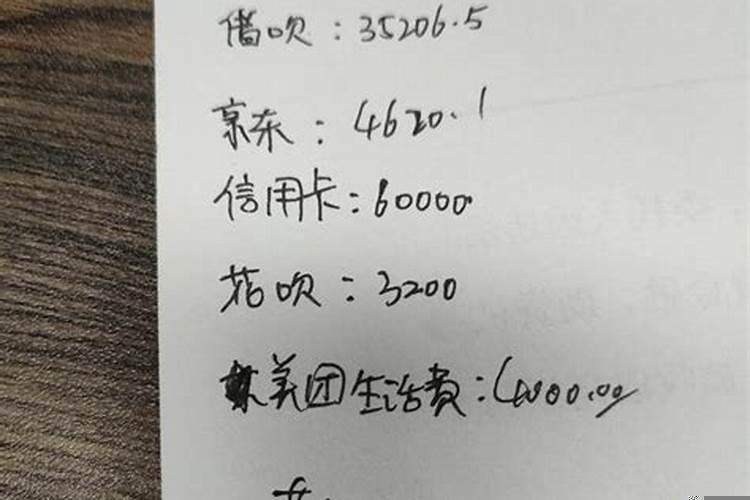 借呗：35206.5
京东：4620.1
信用卡：60000
花呗：3200
美团生活费：4000.00